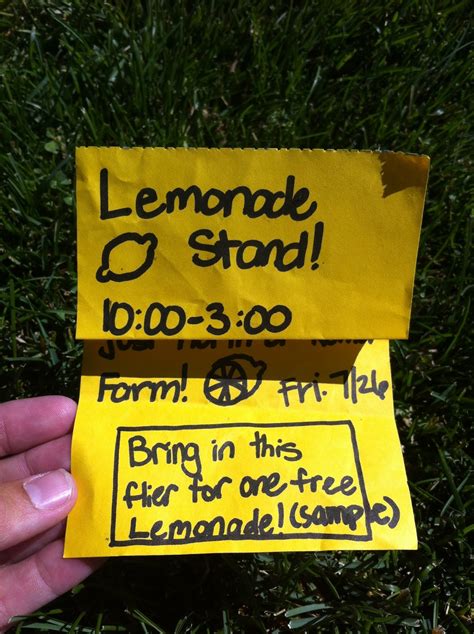 Lemonade
Stand!
10:00-3:00
Form! Fri. 7/26
Bring in this
flier for one free
Lemonade! (sample)